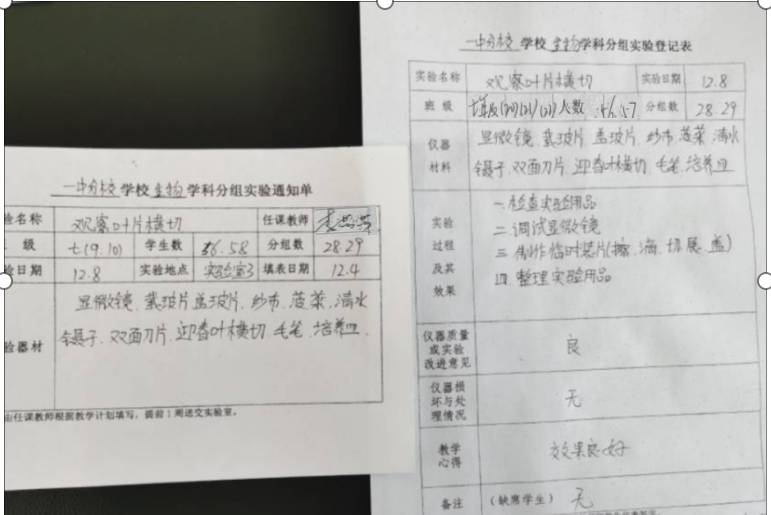 一中分校 学校 生物 学科分组实验通知单
验名称 观察叶片横切 任课教师
级 七(9.10) 学生数 56.58 分组数 28.29
验日期 12.8 实验地点 实验室3 填表日期 12.4
验器材
显微镜、载玻片、盖玻片、纱布、菠菜、清水
镊子、双面刀片、迎春叶横切、毛笔、培养皿、
由任课教师根据教学计划填写，提前1周送交实验室。
一中分校 学校 生物 学科分组实验登记表
实验名称 观察叶片横切 实验日期 12.8
班 级 人数 56.57 分组数 28.29
仪器材料
显微镜、载玻片、盖玻片、纱布、菠菜、清水
镊子、双面刀片、迎春叶横切、毛笔、培养皿
实验过程及其效果
一、检查实验用品
二、调试显微镜
三、制作临时装片(擦、滴、切、展、盖)
四、整理实验用品
仪器质量或实验改进意见 良
仪器损坏与处理情况 无
教学心得 效果良好
备注 (缺席学生) 无